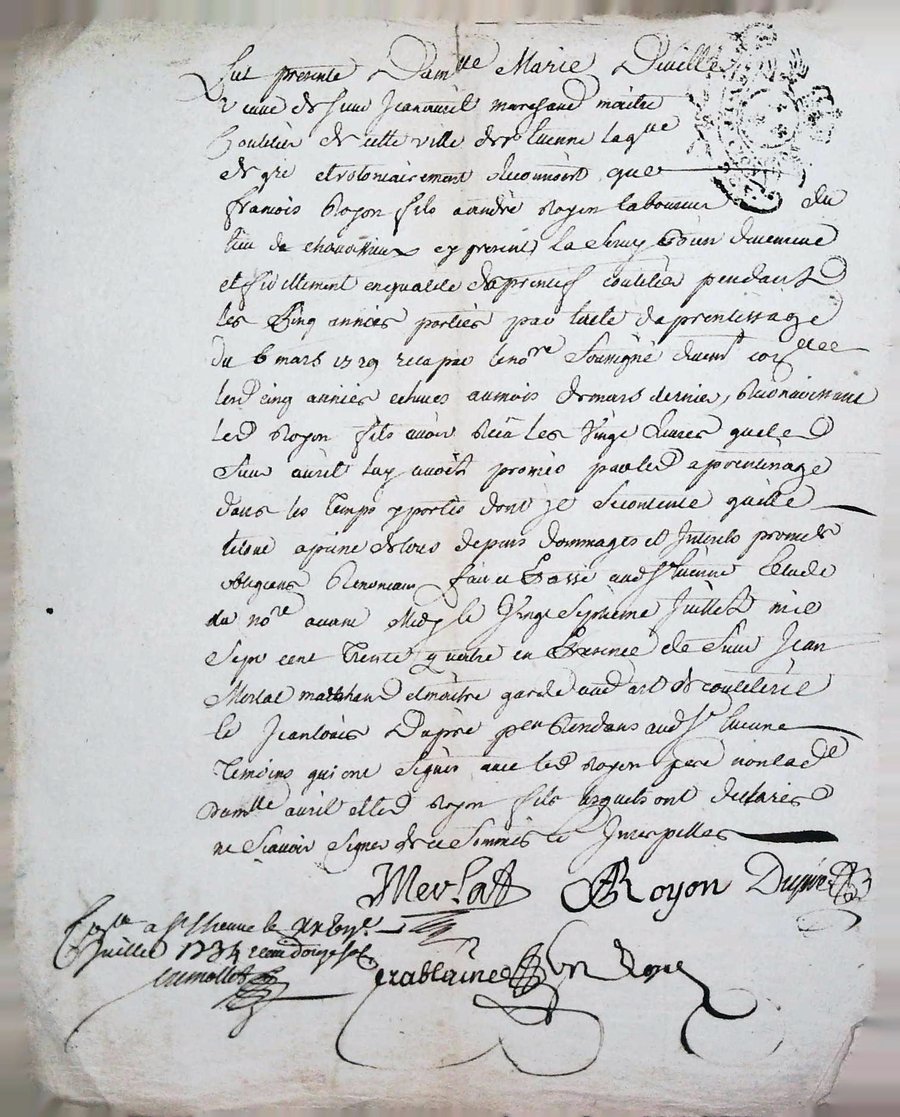 fut presente Dam.lle Marie
veuve de sieur Jean avril marchand maitre
Coutelier de cette ville de st Etienne laq.lle
de gré et volontairement a reconnu que
francois Royon fils a andré Royon laboureur du
lieu de cy present, la servy
et fidellement en qualité d'aprentif coutelier pendant
les Cinq années portées par lacte daprentissage
du 6 mars 1729 receu par le no.re Souvigné
lesd cinq années echues au mois de mars dernier, Reconnoissant
led Royon fils avoir Receu les Vingt livres que led
Sieur avril luy avoit promis par led aprentissage
dans les temps y portés dont
a peine de tous depens dommages et Interets promis
obligeans Renoncans fait et Passé aud st Etienne Etude
du no.re avant Midy le Vingt Septieme Juillet mil
Sept cent Trente quatre en Presence de Sieur Jean
Merlat marchand et maitre garde aud art de coutelerie
Et Jean louis Dupré residans aud st Etienne
Temoins qui ont Signés avec led Royon pere non lad.
Dam.lle avril et led Royon fils lesquels ont declarés
ne Scavoir Signer de ce Sommés et Interpellés
Merlat ARoyon Dupré
a st Etienne le
juillet 1734 receu douze sols